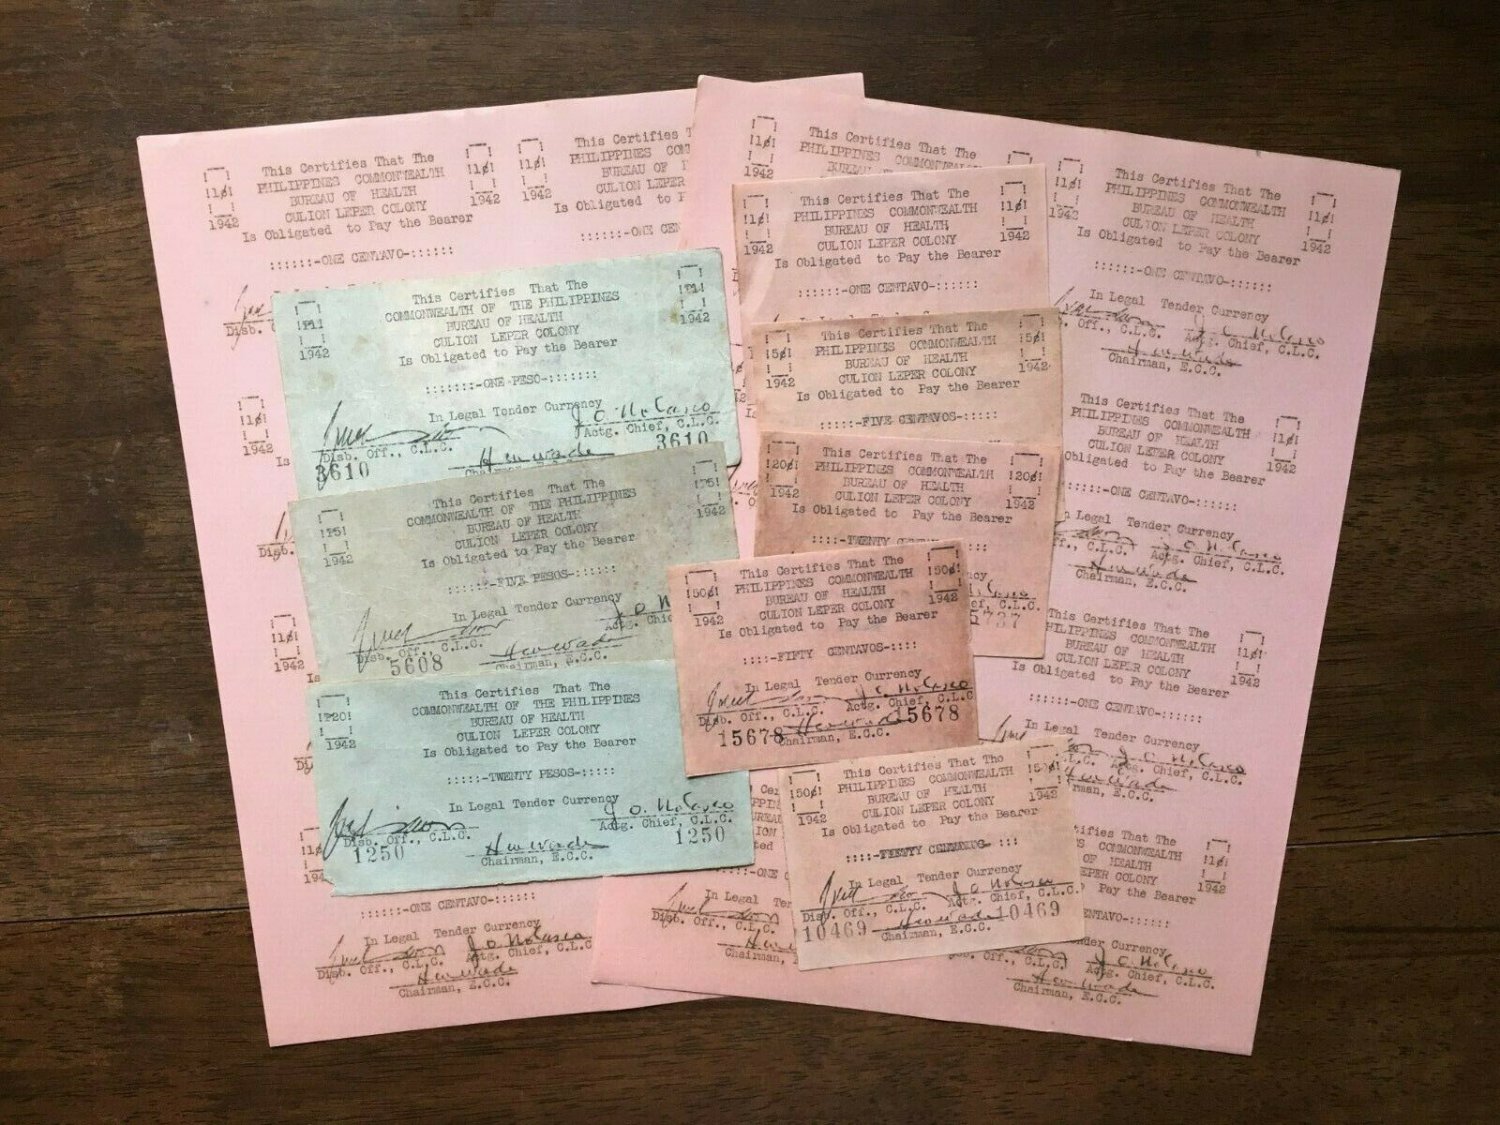 This Certifies That The
PHILIPPINES COMMONWEALTH
BUREAU OF HEALTH
CULION LEPER COLONY
Is Obligated to Pay the Bearer
::::::-ONE CENTAVO-::::::
!1¢!
1942
!1¢!
1942
This Certifies T
PHILIPPINES COM
BUREAU OF
CULION LEPER
Is Obligated to P
::::::-ONE CEN
!1¢!
1942
This Certifies That The
COMMONWEALTH OF THE PHILIPPINES
BUREAU OF HEALTH
CULION LEPER COLONY
Is Obligated to Pay the Bearer
:::::::-ONE PESO-:::::::
In Legal Tender Currency
!P1!
1942
!P1!
1942
J O Nolasco
Disb. Off., C.L.C.
Actg. Chief, C.L.C.
3610
3610
H W Wade
This Certifies That The
COMMONWEALTH OF THE PHILIPPINES
BUREAU OF HEALTH
CULION LEPER COLONY
Is Obligated to Pay the Bearer
::::::-FIVE PESOS-::::::
In Legal Tender Currency
!P5!
1942
!P5!
1942
Disb. Off., C.L.C.
5608
H W Wade
Chairman, E.C.C.
This Certifies That The
COMMONWEALTH OF THE PHILIPPINES
BUREAU OF HEALTH
CULION LEPER COLONY
Is Obligated to Pay the Bearer
:::::-TWENTY PESOS-:::::
In Legal Tender Currency
!P20!
1942
J O Nolasco
Disb. Off., C.L.C.
Actg. Chief, C.L.C.
1250
1250
H W Wade
Chairman, E.C.C.
::::::-ONE CENTAVO-::::::
In Legal Tender Currency
J O Nolasco
Disb. Off., C.L.C.
Actg. Chief, C.L.C.
H W Wade
Chairman, E.C.C.
This Certifies That The
PHILIPPINES COMMONWEALTH
!1¢!
1942
This Certifies That The
PHILIPPINES COMMONWEALTH
BUREAU OF HEALTH
CULION LEPER COLONY
Is Obligated to Pay the Bearer
::::::-ONE CENTAVO-::::::
!1¢!
1942
!1¢!
1942
This Certifies That The
PHILIPPINES COMMONWEALTH
BUREAU OF HEALTH
CULION LEPER COLONY
Is Obligated to Pay the Bearer
:::::-FIVE CENTAVOS-:::::
!5¢!
1942
!5¢!
1942
This Certifies That The
PHILIPPINES COMMONWEALTH
BUREAU OF HEALTH
CULION LEPER COLONY
Is Obligated to Pay the Bearer
!20¢!
1942
!20¢!
1942
::::-TWENTY
5737
This Certifies That The
PHILIPPINES COMMONWEALTH
BUREAU OF HEALTH
CULION LEPER COLONY
Is Obligated to Pay the Bearer
::::-FIFTY CENTAVOS-::::
In Legal Tender Currency
!50¢!
1942
!50¢!
1942
J O Nolasco
Disb. Off., C.L.C.
Actg. Chief, C.L.C
15678
15678
H W Wade
Chairman, E.C.C.
This Certifies That The
PHILIPPINES COMMONWEALTH
BUREAU OF HEALTH
CULION LEPER COLONY
Is Obligated to Pay the Bearer
In Legal Tender Currency
!50¢!
1942
!50¢!
1942
J O Nolasco
Disb. Off., C.L.C.
Actg. Chief, C.L.C.
10469
10469
Chairman, E.C.C.
This Certifies That The
PHILIPPINES COMMONWEALTH
BUREAU OF HEALTH
CULION LEPER COLONY
Is Obligated to Pay the Bearer
::::::-ONE CENTAVO-::::::
In Legal Tender Currency
!1¢!
1942
!1¢!
1942
J O Nolasco
Off., C.L.C.
Actg. Chief, C.L.C.
H W Wade
Chairman, E.C.C.
This Certifies That The
PHILIPPINES COMMONWEALTH
BUREAU OF HEALTH
CULION LEPER COLONY
Obligated to Pay the Bearer
::::::-ONE CENTAVO-::::::
Legal Tender Currency
!1¢!
1942
J O Nolasco
C.L.C.
Actg. Chief, C.L.C.
H W Wade
Chairman, E.C.C.
This Certifies That The
PHILIPPINES COMMONWEALTH
BUREAU OF HEALTH
CULION LEPER COLONY
Is Obligated to Pay the Bearer
::::::-ONE CENTAVO-::::::
In Legal Tender Currency
!1¢!
1942
J O Nolasco
Actg. Chief, C.L.C.
H W Wade
That The
COMMONWEALTH
OF HEALTH
COLONY
Pay the Bearer
CENTAVO-::::::
Currency
!1¢!
1942
J O Nolasco
Actg. Chief, C.L.C.
H W Wade
Chairman, E.C.C.